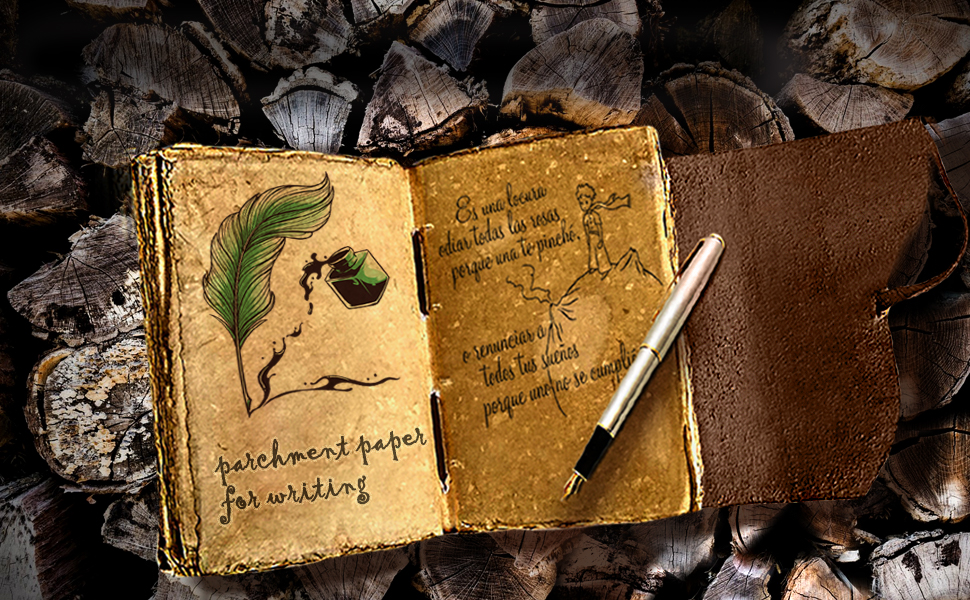 parchment paper
for writing
Es una locura
odiar todas las rosas
porque una te pinchó,
o renunciar a
todos tus sueños
porque uno no se cumplió